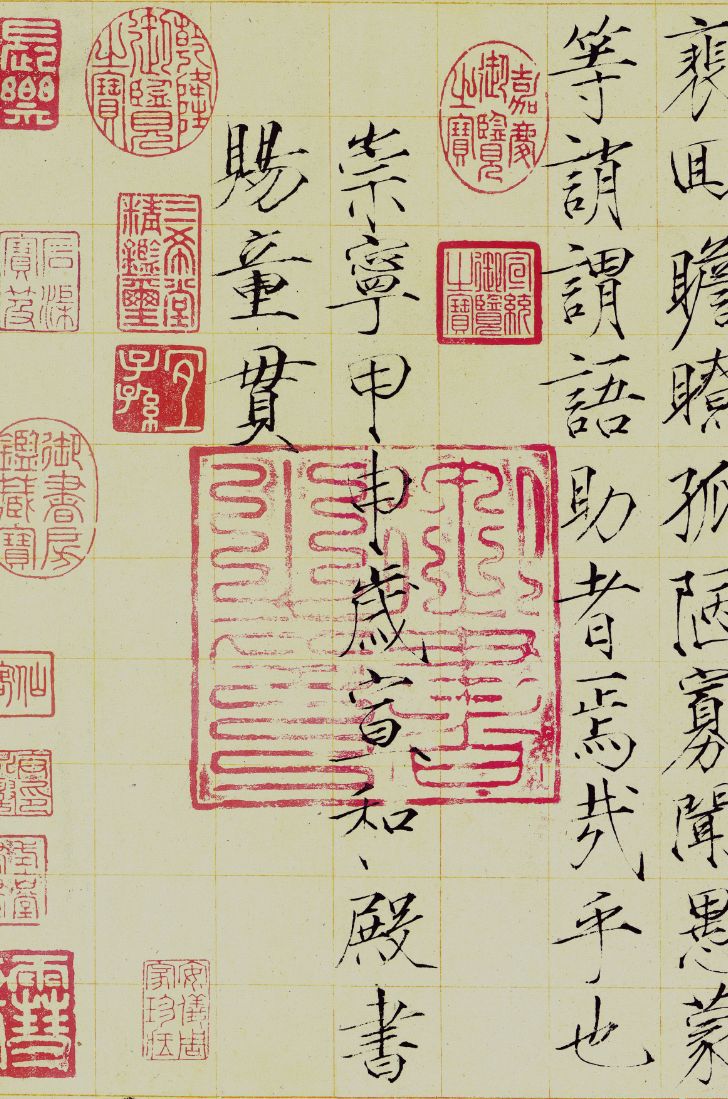 裵囬瞻瞭孤陋寡聞愚蒙
等誚謂語助者焉哉乎也
嘉慶御覽之寶
宣統御覽之寶
崇寧甲申歲宣和殿書
賜童貫
乾隆御覽之寶
三希堂精鑑璽
宜子孫
安儀周家珍藏
石渠寶笈
御書房鑑藏寶